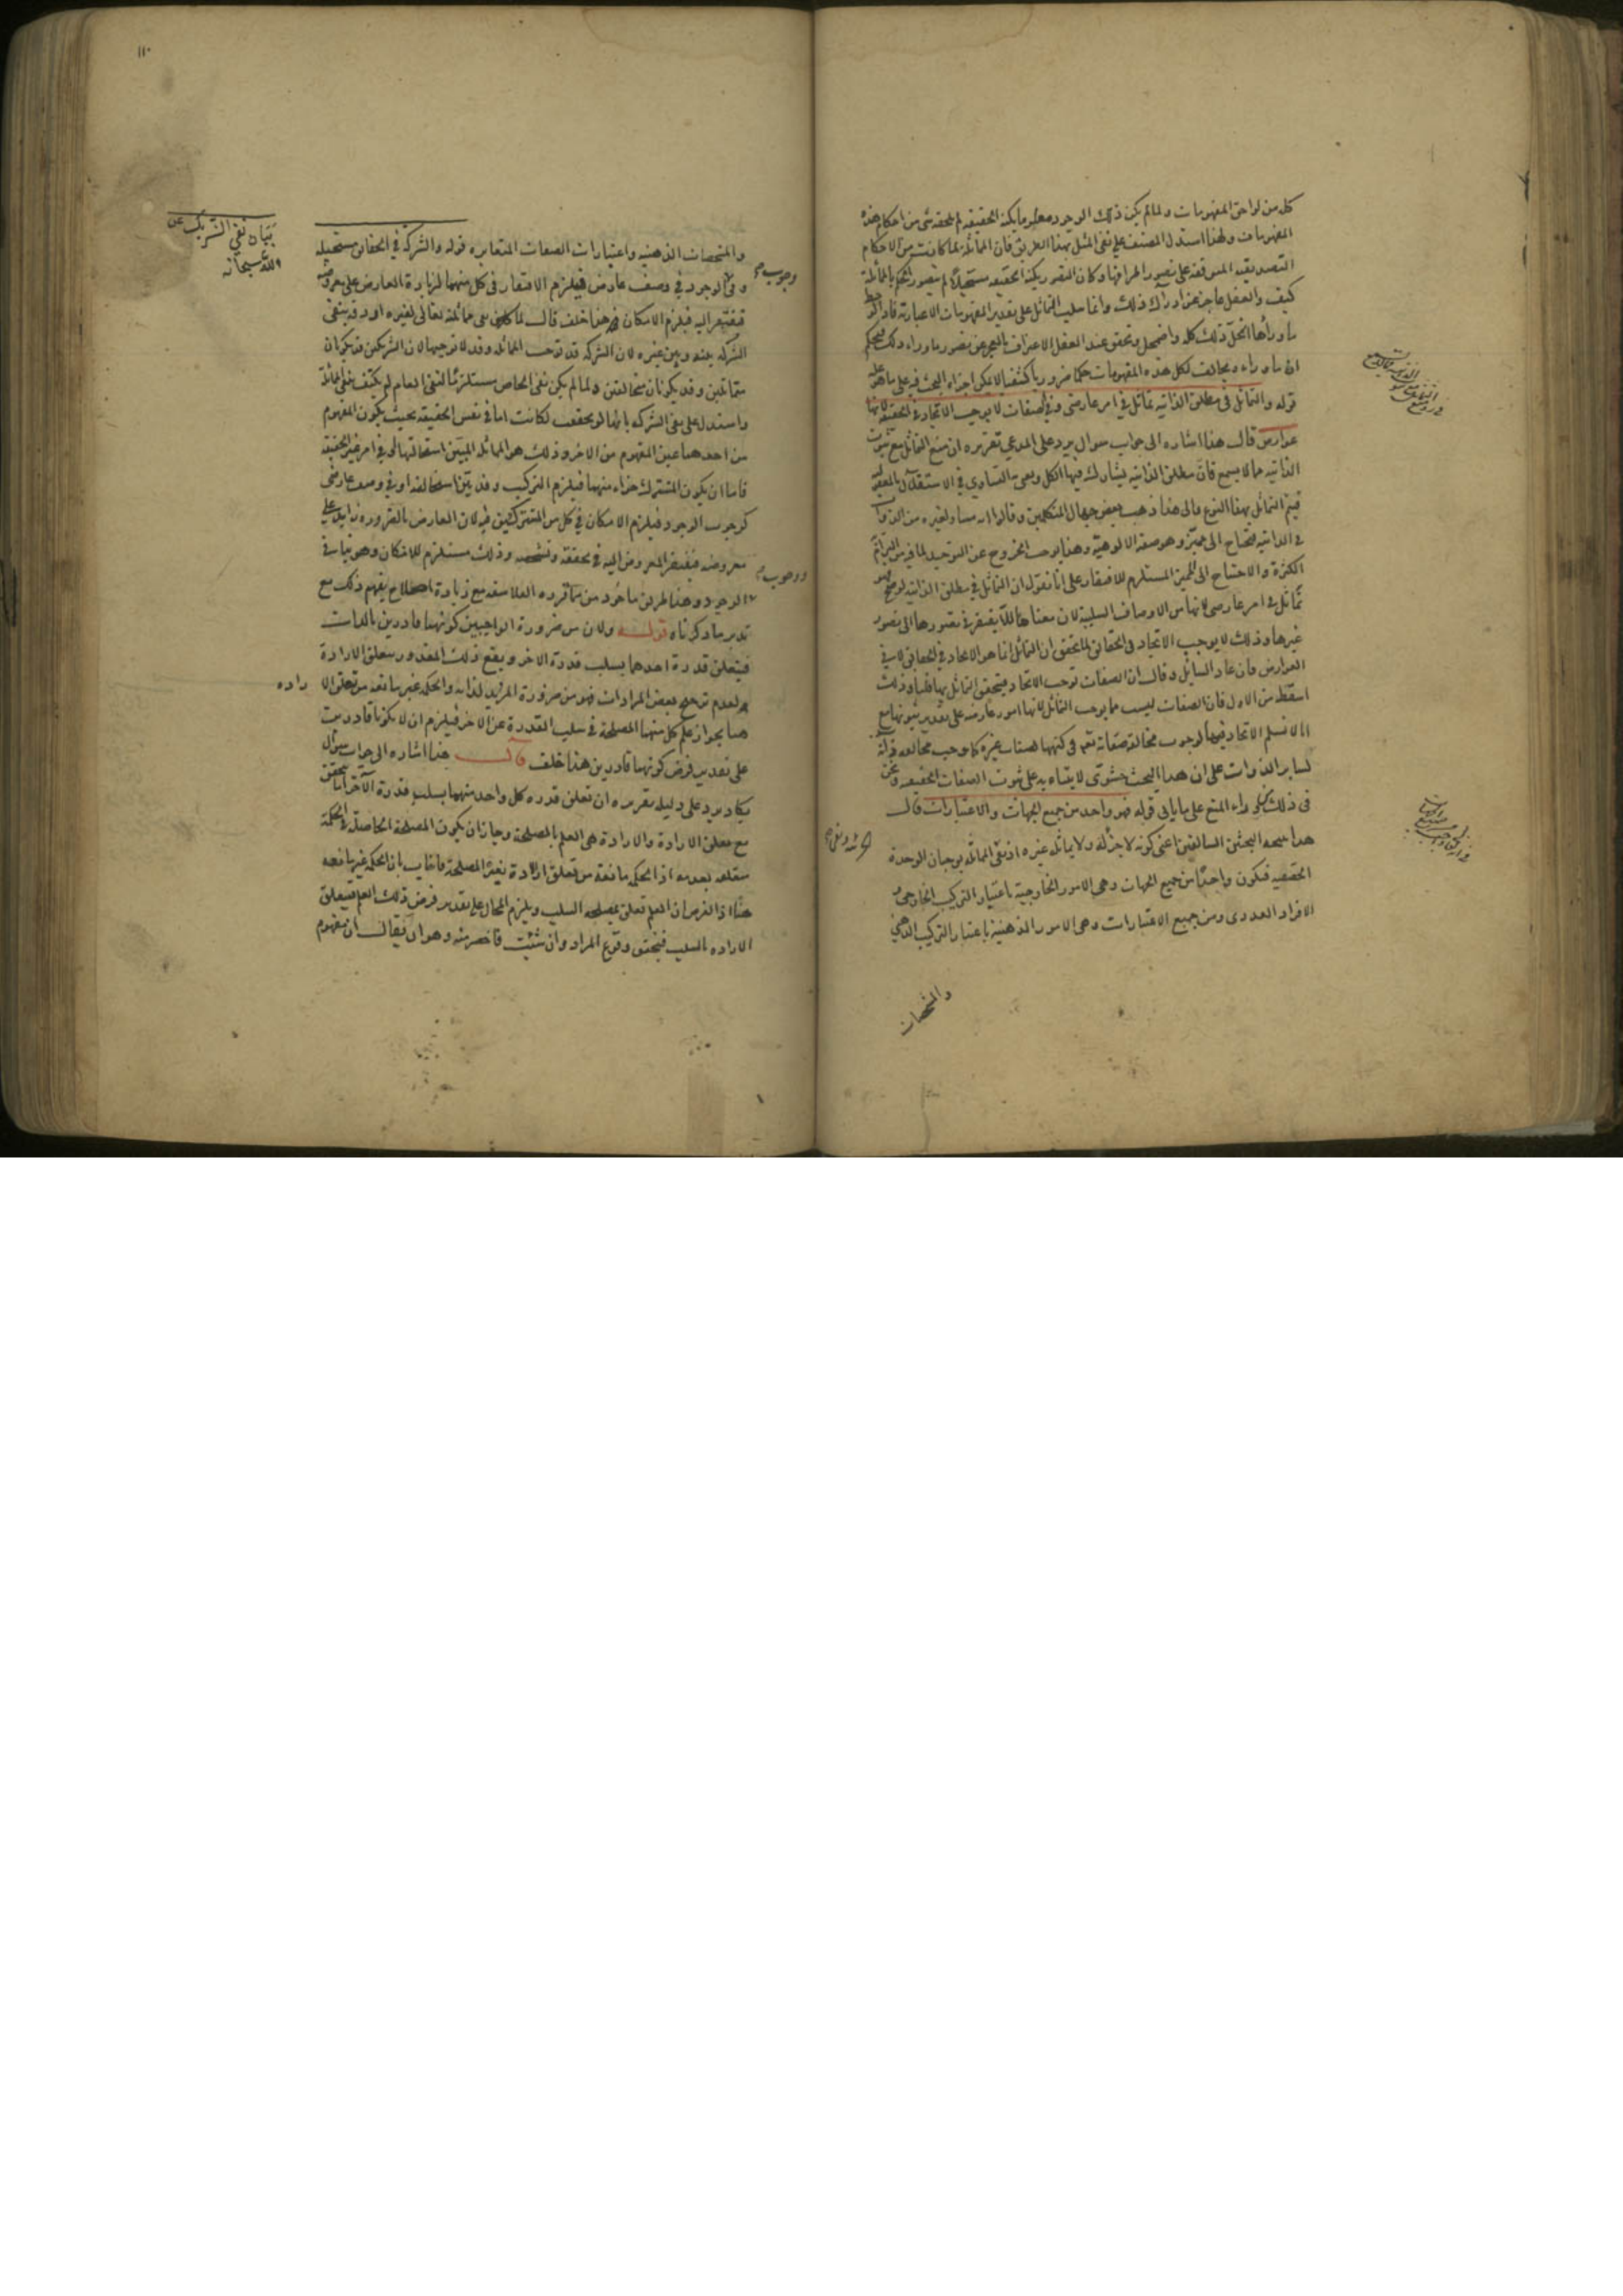 كل من لواحق المفهومات ولما لم يكن ذلك الوجود معلوما بكنه الحقيقة لم يلحقه شى من احكام هذه
المفهومات ولهذا استدل المصنف على نفى المثل بهذا الطريق فان المماثلة لما كانت من الاحكام
التصديقيه المتوقفة على تصور اطرافها وكان التصور بكنه الحقيقه مستحيلا لم يتصور الحكم بالمماثلة
كيف والعقل عاجز عن ادراك ذلك وانما سلب التماثل على تقدير المفهومات الاعتبارية فاذا
ما وراها انحل ذلك كله واضمحل وتحقق عند العقل الاعتراف بالعجز عن تصور ما وراء ذلك فيحكم
ان ما وراءه مخالف لكل هذه المفهومات حكما ضروريا كشفيا لا يمكن اجراء البحث فيه على ما هو عليه
قوله والتماثل فى مطلق الذاتيه تماثل في امر عارضى وفي الصفات لا يوجب الاتحاد في الحقيقة لانها
عوارض قال هذا اشاره الى جواب سوال يرد على المدعي تقريره ان منع التماثل مع ثبوت
الذاتيه مما لا يسمع فان مطلق الذاتيه يشارك فيها الكل وهى التساوي في الاستقلال بالمعقولية
فيتم التماثل بهذا النوع والى هذا ذهب بعض جهال المتكلمين وقالوا انه مساو لغيره من الذوات
فى الذاتيه فيحتاج الى مميز وهو صفة الالوهية وهذا يوجب الخروج عن التوحيد لما فيه من
الكثرة والاحتياج الى المميز المستلزم للافتقار على انا نقول ان التماثل في مطلق الذاتيه لو صح فهو
تماثل في امر عارضى لانها من الاوصاف السلبية لان معناها ما لا يفتقر في تصورها الى تصور
غيرها وذلك لا يوجب الاتحاد فى الحقائق لما تحقق ان التماثل انما هو الاتحاد في الحقائق لا في
العوارض فان عاد السائل وقال ان الصفات توجب الاتحاد فيتحقق التماثل بها قلنا وذلك
اسقط من الاول فان الصفات ليست مما يوجب التماثل لانها امور عارضه على تقدير ثبوتها مع
انا لا نسلم الاتحاد فيها لوجوب مخالفة صفاته تعالى فى كنهها لصفات غيره كما وجب مخالفه ذاته
لساير الذوات على ان هذا البحث حشوى لابتنائه على ثبوت الصفات الحقيقيه ونحن
فى ذلك من وراء المنع على ما ياتي قوله فهو واحد من جميع الجهات والاعتبارات قال
هذا نتيجه البحثين السالفين اعنى كونه لا جزء له ولا يماثله غيره اذ نفى المماثلة يوجبان الوحدة
الحقيقيه فيكون واحدا من جميع الجهات وهى الامور الخارجية باعتبار التركيب الخارجى و
الافراد العددى ومن جميع الاعتبارات وهى الامور الذهنية باعتبار التركيب الذهني
والمشخصات
١١٠
بيان نفي الشريك عن
الله سبحانه
والمشخصات الذهنيه واعتبارات الصفات المتغايره قوله والشركة في الحقائق مستحيله
وفى الوجود في وصف عارض فيلزم الافتقار فى كل منهما لزيادة العارض على معروضه
وجوب
فيفتقر اليه فيلزم الامكان هذا خلف قال لما كان نفى مماثلته تعالى لغيره اورد فيه بنفى
الشركه بينه وبين غيره لان الشركه قد توجب المماثله وقد لا توجبها لان الشريكين قد يكونان
متماثلين وقد يكونان متخالفين ولما لم يكن نفى الخاص مستلزما لنفى العام لم يكتف بنفى المماثلة
واستدل على نفى الشركه بانها لو تحققت لكانت اما في نفس الحقيقه بحيث يكون المفهوم
من احدهما عين المفهوم من الاخر وذلك هو المماثله المبين استحالتها او في امر غير الحقيقة
فاما ان يكون المشترك جزاء منهما فيلزم التركيب وقد بين استحالته او في وصف عارضى
كوجوب الوجود فيلزم الامكان في كل من المشتركين فيه لان العارض بالضروره زايد على
معروضه فيفتقر المعروض اليه في تحققه وتشخصه وذلك مستلزم للامكان وهو ينافى
الوجود وهذا طريق ماخوذ من ما قرره الفلاسفه مع زيادة اصطلاح يفهم ذلك مع
ووجوب
تدبر ما ذكرناه قوله ولان من ضرورة الواجبين كونهما قادرين بالذات
فيتعلق قدرة احدهما بسلب قدرة الاخر ويقع ذلك المقدور بتعلق الارادة
لعدم ترجح بعض المرادات فهو من ضرورة المريد لذاته والحكمه غير مانعه من تعلق الا
راده
هنا بجواز علم كل منهما المصلحة في سلب القدرة عن الاخر فيلزم ان لا يكونا قادرين
على تقدير فرض كونهما قادرين هذا خلف قال هذا اشاره الى جواب سوال
يكاد يرد على دليله تقريره ان تعلق قدره كل واحد منهما بسلب قدرة الاخر انما يتحقق
مع تعلق الارادة والارادة هى العلم بالمصلحة وجاز ان يكون المصلحة الحاصلة فى الحكمة
متعلقه بعدمه اذ الحكمه مانعة من تعلق الارادة بغير المصلحة فاجاب بان الحكمه غير مانعه
هنا اذ الفرض ان العلم تعلق بمصلحه السلب ويلزم المحال على تقدير فرض ذلك العلم فيتعلق
الاراده بالسلب فيتحقق وقوع المراد وان شئت فاختصرته وهو ان يقال ان مفهوم